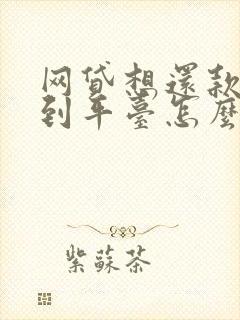 网贷想還款
到平臺怎麼
紫蘇茶